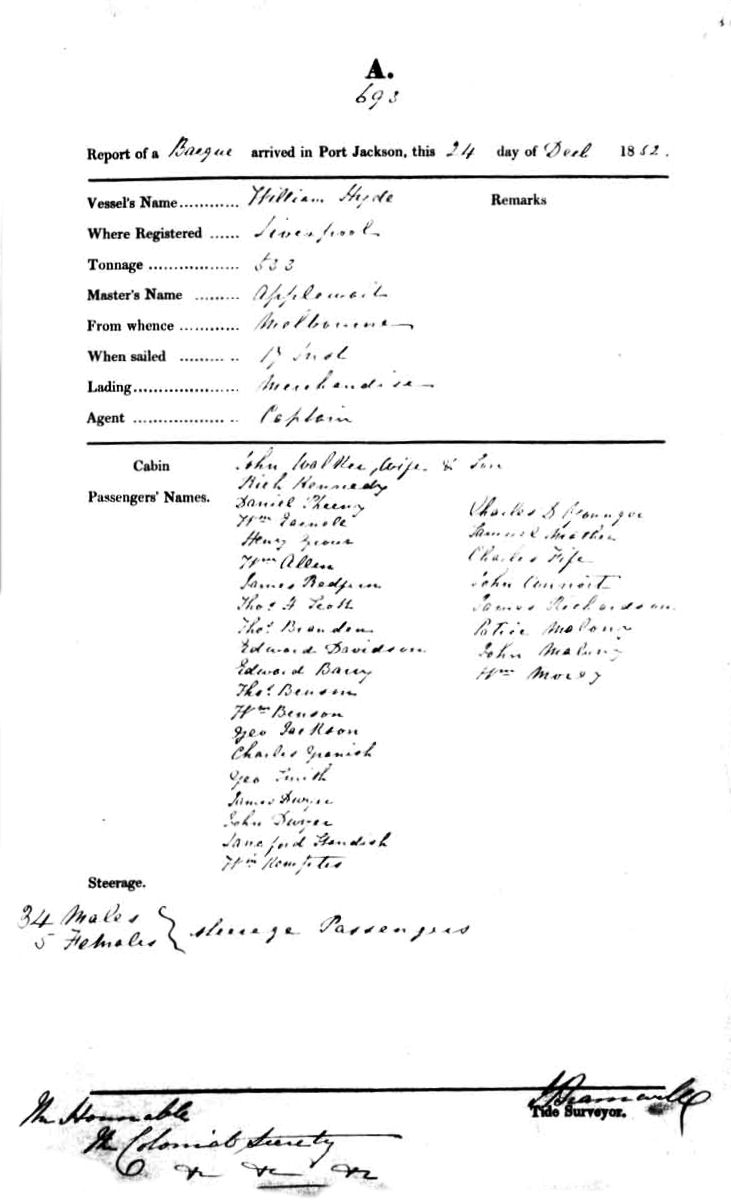 A.
693
Report of a Barque arrived in Port Jackson, this 24 day of Decr 1852.
Vessel's Name............ William Hyde
Remarks
Where Registered ...... Liverpool
Tonnage .................. 533
Master's Name ......... Applewait
From whence ............ Melbourne
When sailed ......... .. 17 Inst
Lading..................... Merchandise
Agent .................. .. Captain
Cabin
Passengers' Names.
John Walker, Wife & Son
Rich Kennedy
Daniel
Wm
Henry
Wm Allen
James Redfern
Thos H Scott
Thos Branden
Edward Davidson
Edward Barry
Thos Benson
Wm Benson
Geo Jackson
Charles Spanish
Geo Smith
James Dwyer
John Dwyer
Standish
Wm Kompter
Charles D Younger
Samuel Mather
Charles Fife
John
James Richardson
Patric Malony
John Malony
Wm Morey
Steerage.
34 Males
5 Females } steerage Passengers
Tide Surveyor.
The Honorable
The Colonial Secrety
&c &c &c